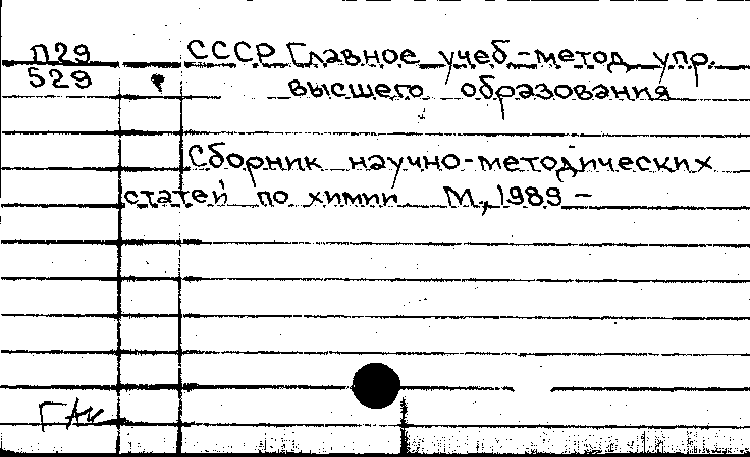 П29 СССР Главное учеб.-метод упр.
529 высшего образования
Сборник научно-методических
статей по химии М., 1989 –
ГАК